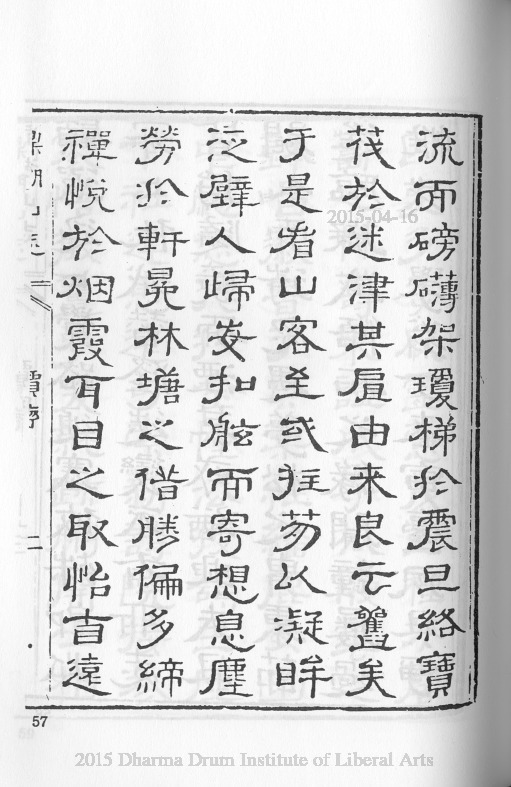 流而磅礴架瓊梯於震旦絡寶
筏於迷津其肩由来良云舊矣
于是看山客至或拄笏以凝眸
泛壁人歸爰扣舷而寄想息塵
勞於軒冕林塘之借勝偏多締
禪悅於烟霞耳目之取怡自遠
鼎湖山志
序
二
57
2015-04-16
2015 Dharma Drum Institute of Liberal Arts